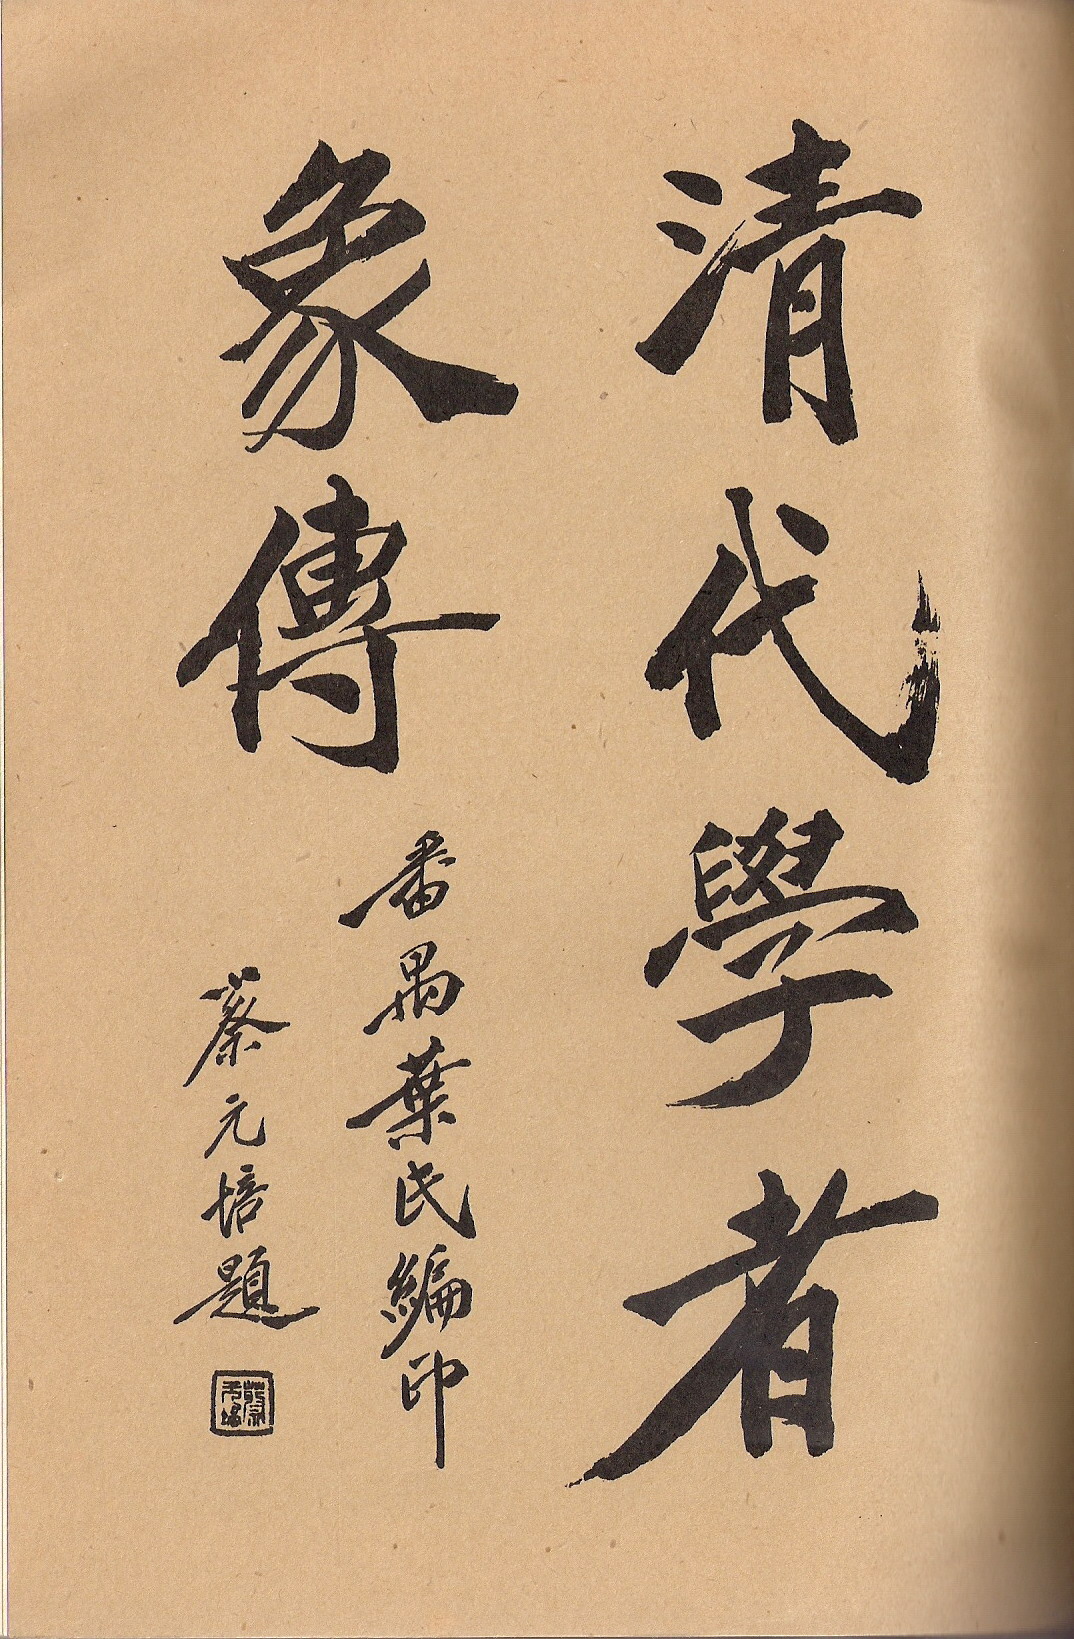 清代學者
象傳
番禺葉氏編印
蔡元培題
蔡元培